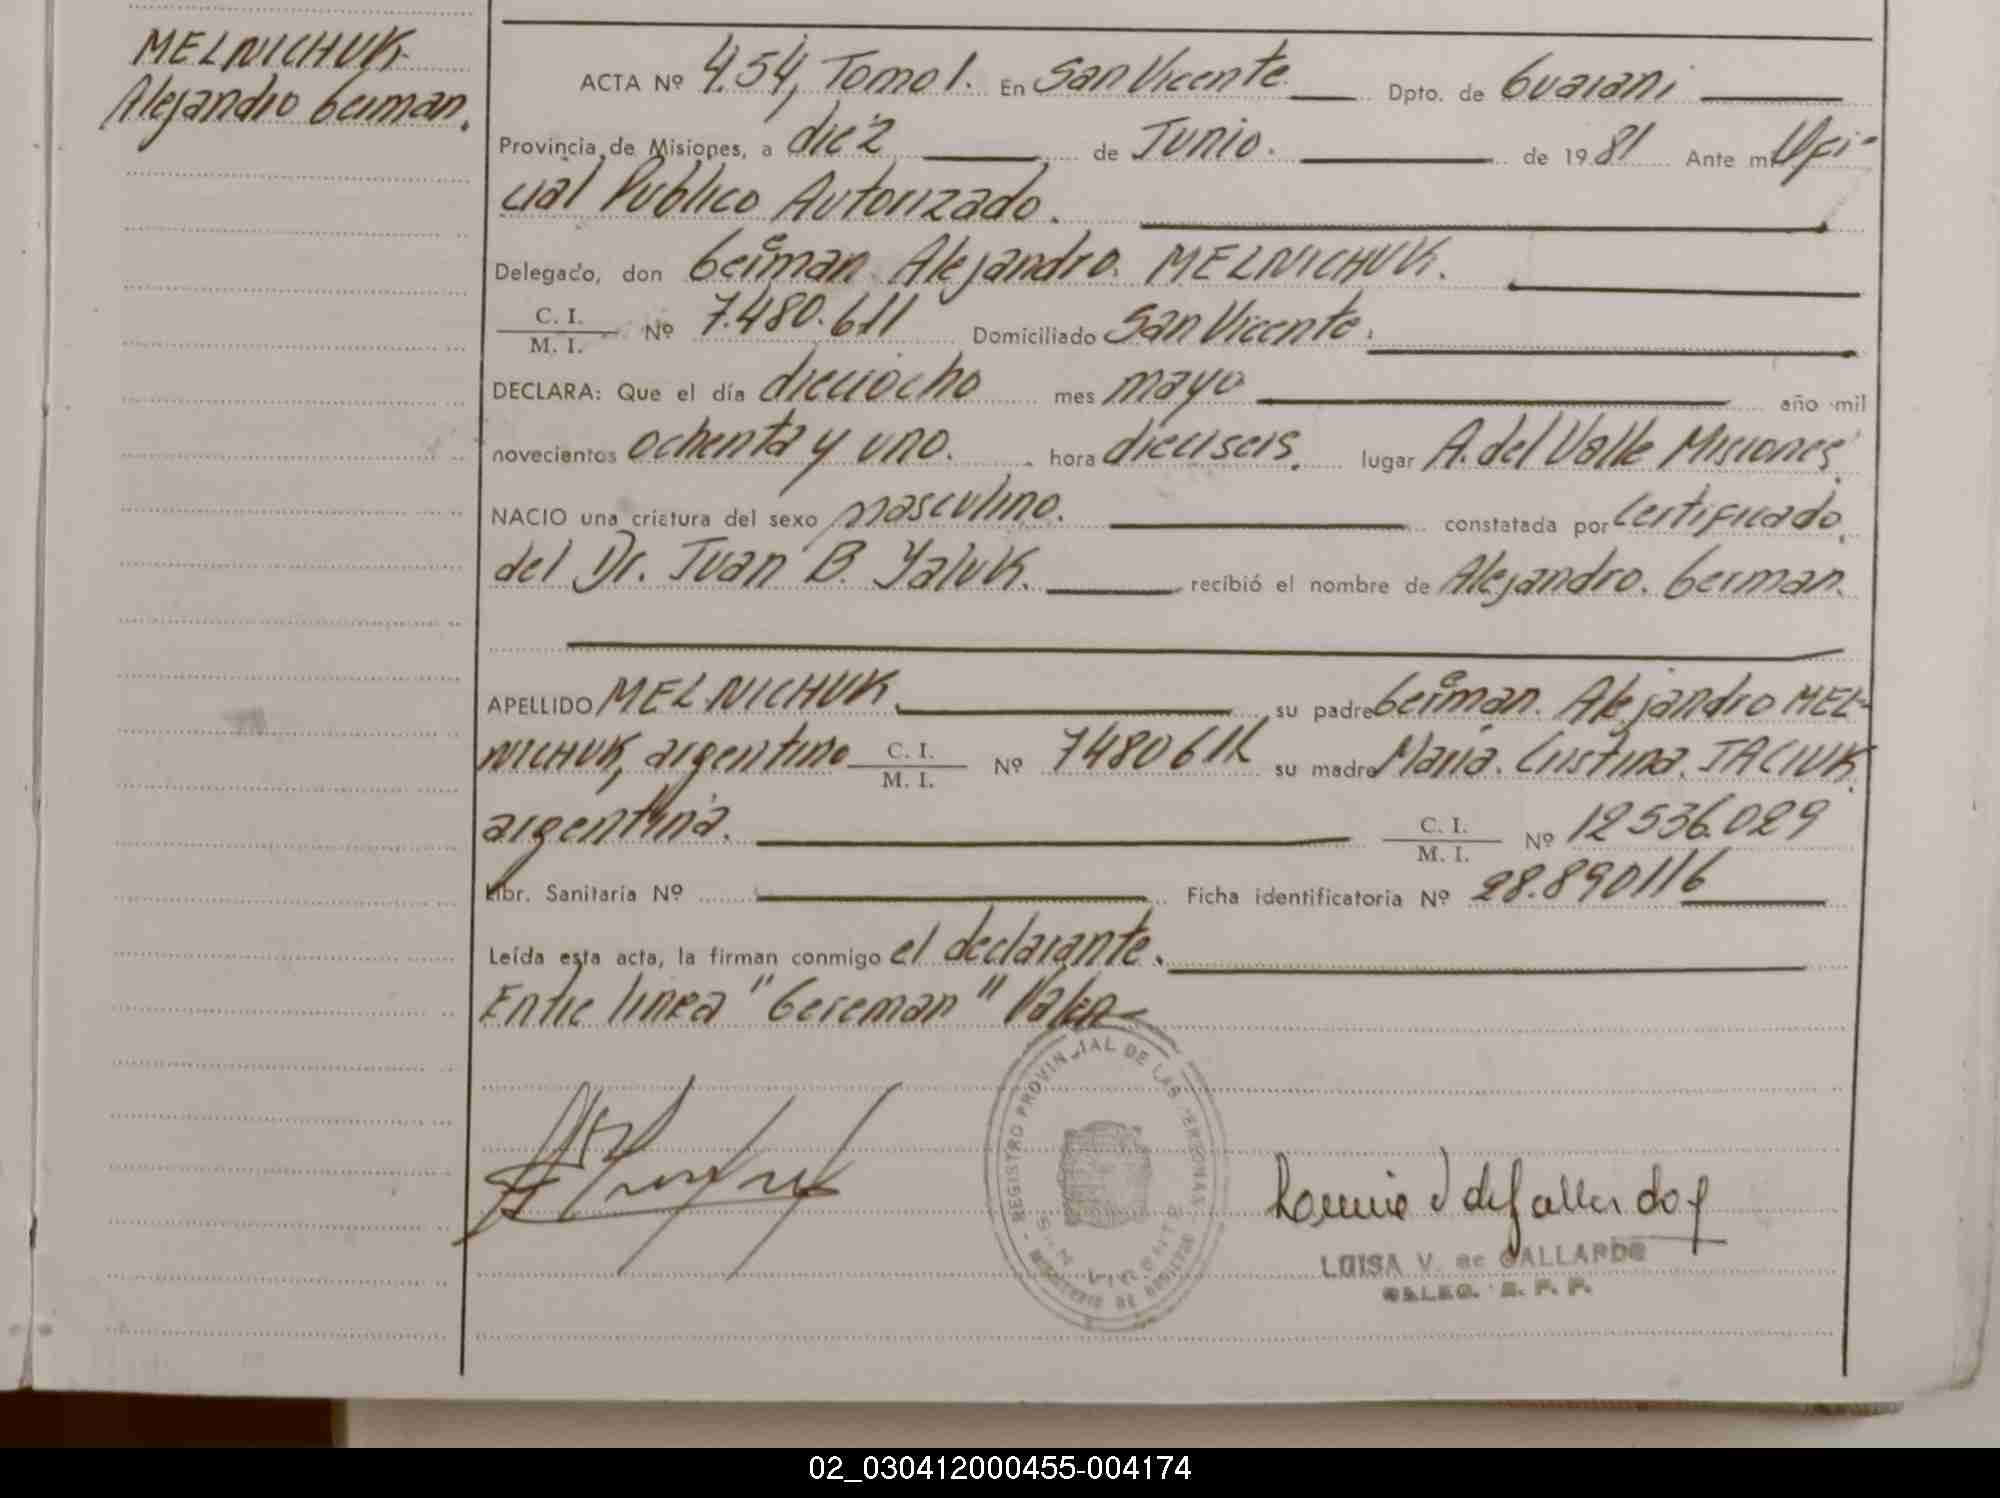 MELNICHUK
Alejandro German.
ACTA Nº 454, Tomo 1. En San Vicente. Dpto. de Guarani
Provincia de Misiones, a diez de Junio. de 1981 Ante mi Ofi-
cial Publico Autorizado.
Delegado, don Gereman Alejandro. MELNICHUK.
C. I.
M. I. Nº 7.480.611 Domiciliado San Vicente.
DECLARA: Que el día dieciocho mes mayo año mil
novecientos ochenta y uno. hora dieciseis. lugar A. del Valle Misiones.
NACIO una criatura del sexo masculino. constatada por certificado
del Dr. Juan B. Yaluk. recibió el nombre de Alejandro. German.
APELLIDO MELNICHUK su padre Gereman. Alejandro MEL-
NICHUK, argentino C. I.
M. I. Nº 7480611 su madre Maria. Cristina. JACIUK
argentina. C. I.
M. I. Nº 12536.029
Libr. Sanitaria Nº Ficha identificatoria Nº 28.890116
Leída esta acta, la firman conmigo el declarante.
Entre linea "Gereman" Valen
REGISTRO PROVINCIAL DE LAS PERSONAS
SAN VICENTE
LUISA V. de GALLARDO
DELEG. R. P. P.
02_030412000455-004174